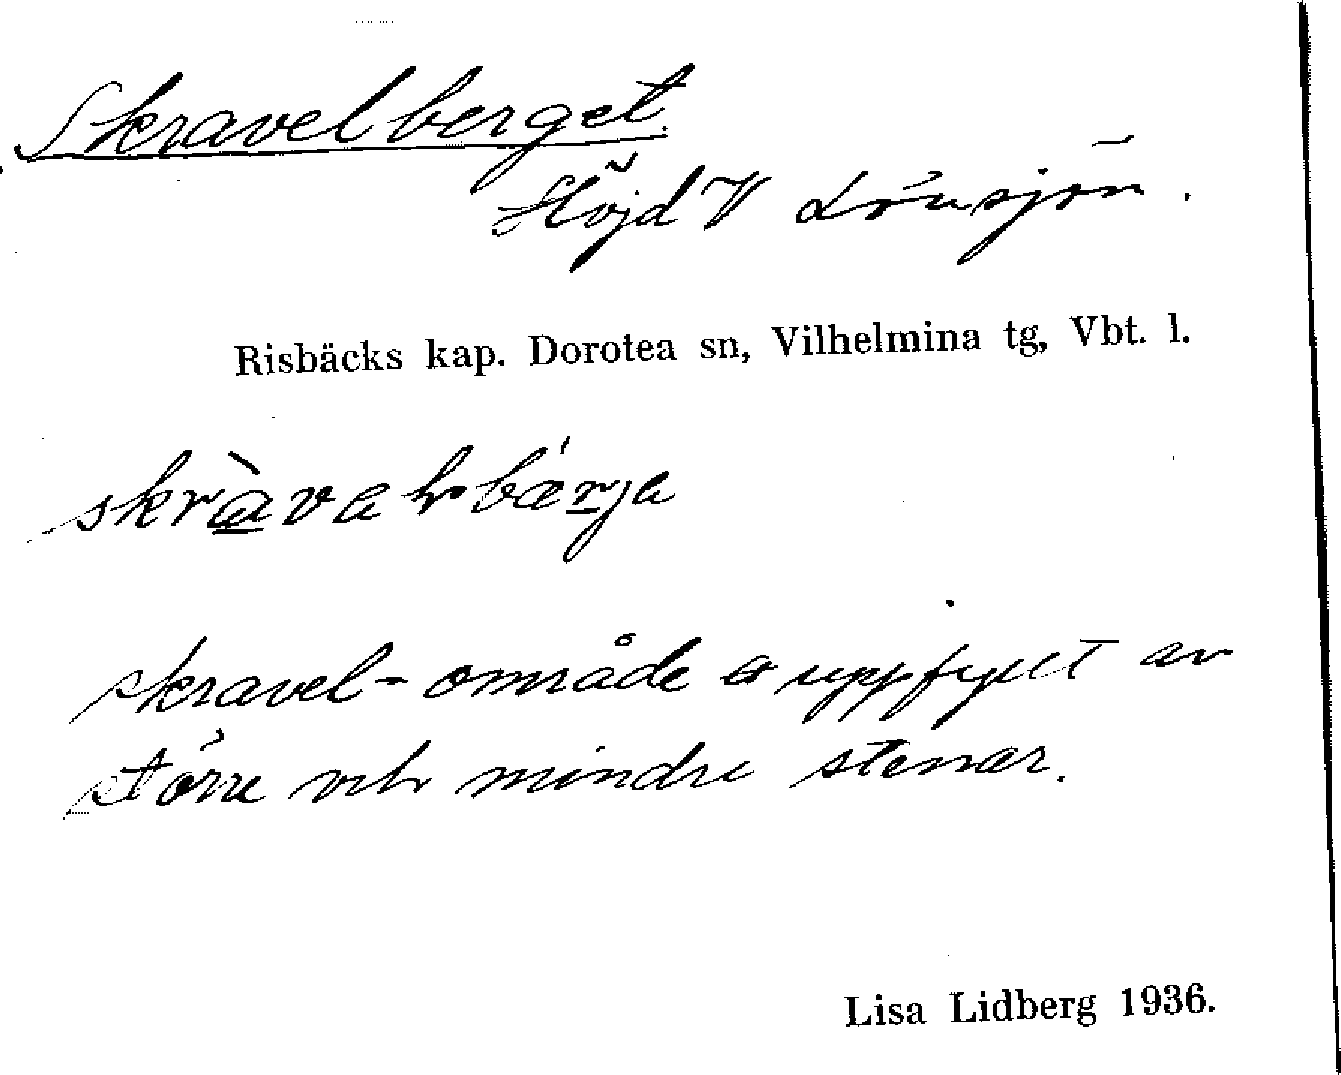 Skravelberget.
Höjd V Lönsjön.
Risbäcks kap. Dorotea sn, Vilhelmina tg, Vbt. l.
skràvelbærja
skravel - område uppfyllt av
större och mindre stenar.
Lisa Lidberg 1936.